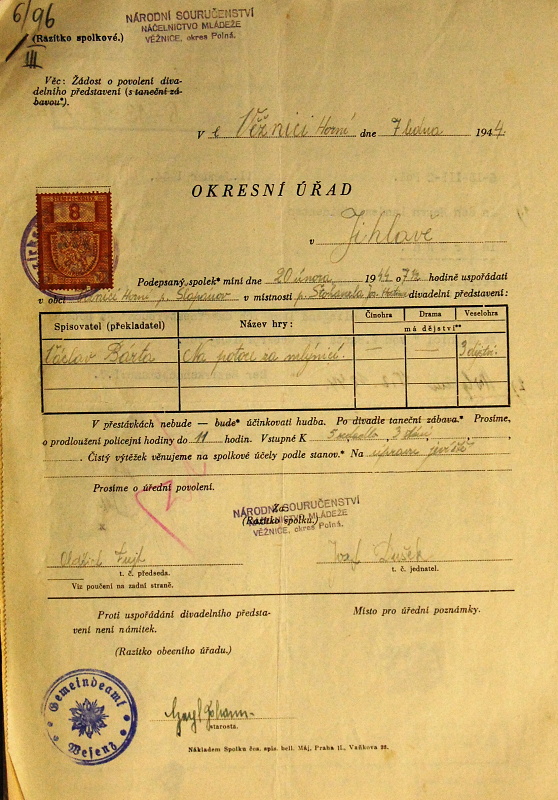 6/96
III
NÁRODNÍ SOURUČENSTVÍ
NÁČELNICTVO MLÁDEŽE
VĚŽNICE, okres Polná.
(Razítko spolkové.)
Věc: Žádost o povolení diva-
delního představení (s taneční zá-
bavou*).
V e Věžnici Horní dne 7 ledna 1944.
OKRESNÍ ÚŘAD
8
v Jihlavě
Podepsaný spolek* míní dne 20 února 1944 o 7½ hodině uspořádati
v obci Věžnici Horní p. Štěpánov v místnosti p. divadelní představení:
Spisovatel (překladatel) Název hry: Činohra Drama Veselohra
má dějství**
Václav Bárta Na potoce za mlýnicí. — — 3 dějství.
V přestávkách nebude — bude* účinkovati hudba. Po divadle taneční zábava.* Prosíme,
o prodloužení policejní hodiny do 11 hodin. Vstupné K 5 sedadlo, 3 stání,
. Čistý výtěžek věnujeme na spolkové účely podle stanov.* Na úpravu jeviště
Prosíme o úřední povolení.
Za
(Razítko spolku.)
NÁRODNÍ SOURUČENSTVÍ
NÁČELNICTVO MLÁDEŽE
VĚŽNICE, okres Polná.
Josef Dušek
t. č. předseda. t. č. jednatel.
Viz poučení na zadní straně.
Proti uspořádání divadelního předsta-
vení není námitek.
Místo pro úřední poznámky.
(Razítko obecního úřadu.)
Gemeindeamt
Wesenz
Johann
starosta.
Nákladem Spolku čes. spis. bell. Máj, Praha II., Vaňkova 98.